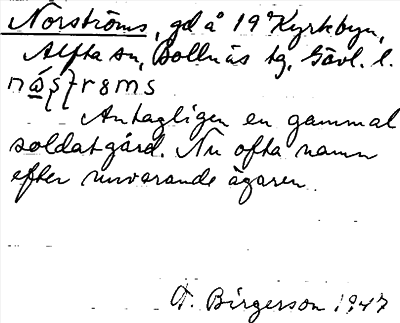 Norströms, gd å 19 Kyrkbyn,
Alfta sn, Bollnäs tg, Gävl. l.
Antagligen en gammal
soldatgård. Nu ofta namn
efter nuvarande ägaren.
A. Birgerson 1947